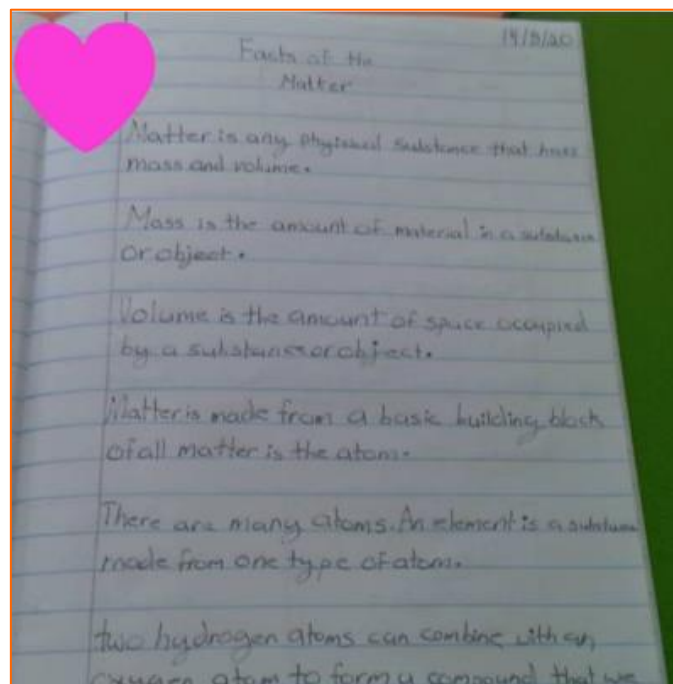 14/8/20
Facts of the
Matter
Matter is any physical substance that has
mass and volume.
Mass is the amount of material in a substance
or object.
Volume is the amount of space occupied
by a substans or object.
Matter is made from a basic building block
of all matter is the atom.
There are many atoms. An element is a substance
made from one type of atom.
two hydrogen atoms can combine with an
oxygen atom to form a compound that we